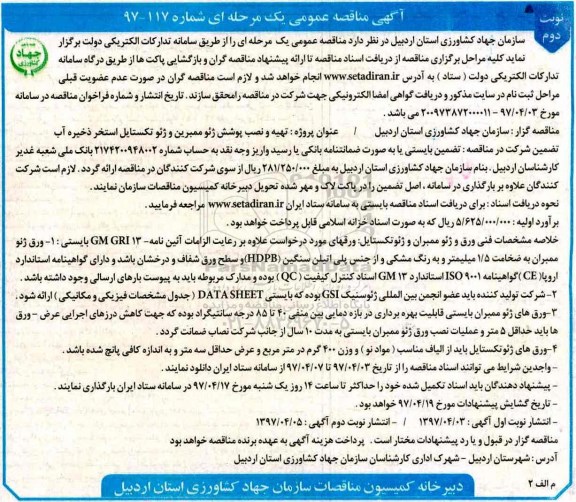 آگهی مناقصه عمومی یک مرحله ای شماره ۱۱۷-۹۷
نوبت دوم
جهاد کشاورزی
سازمان جهاد کشاورزی استان اردبیل در نظر دارد مناقصه عمومی یک مرحله ای را از طریق سامانه تدارکات الکتریکی دولت برگزار
نماید کلیه مراحل برگزاری مناقصه از دریافت اسناد مناقصه تا ارائه پیشنهاد مناقصه گران و بازگشایی پاکت ها از طریق درگاه سامانه
تدارکات الکتریکی دولت ( ستاد ) به آدرس www.setadiran.ir انجام خواهد شد و لازم است مناقصه گران در صورت عدم عضویت قبلی
مراحل ثبت نام در سایت مذکور و دریافت گواهی امضا الکترونیکی جهت شرکت در مناقصه را محقق سازند . تاریخ انتشار و شماره فراخوان مناقصه در سامانه
مورخ ۹۷/۰۴/۰۳ - ۲۰۰۹۷۳۸۷۲۰۰۰۰۱۱ می باشد .
مناقصه گزار : سازمان جهاد کشاورزی استان اردبیل / عنوان پروژه : تهیه و نصب پوشش ژئو ممبرین و ژئو تکستایل استخر ذخیره آب
تضمین شرکت در مناقصه : تضمین بایستی یا به صورت ضمانتنامه بانکی یا رسید واریز وجه نقد به حساب شماره ۲۱۷۴۲۰۰۹۴۸۰۰۲ بانک ملی شعبه غدیر
کارشناسان اردبیل . بنام سازمان جهاد کشاورزی استان اردبیل به مبلغ ۲۸۱/۲۵۰/۰۰۰ ریال از سوی شرکت کنندگان در مناقصه ارائه گردد . لازم است شرکت
کنندگان علاوه بر بارگذاری در سامانه ، اصل تضمین را در پاکت لاک و مهر شده تحویل دبیرخانه کمیسیون مناقصات سازمان نمایند .
نحوه دریافت اسناد : برای دریافت اسناد مناقصه بایستی به سامانه ستاد ایران www.setadiran.ir مراجعه فرمایید .
برآورد اولیه : ۵/۶۲۵/۰۰۰/۰۰۰ ریال که به صورت اسناد خزانه اسلامی قابل پرداخت خواهد بود .
خلاصه مشخصات فنی ورق و ژئو ممبران و ژئوتکستایل: ورقهای مورد درخواست علاوه بر رعایت الزامات آئین نامه- GM GRI ۱۳ بایستی : ۱- ورق ژئو
ممبران به ضخامت ۱/۵ میلیمتر و به رنگ مشکی و از جنس پلی اتیلن سنگین (HDPB) و سطح ورق شفاف و درخشان باشد و دارای گواهینامه استاندارد
اروپا( CE ) گواهینامه ISO ۹۰۰۱ استاندارد GM ۱۳ اسناد کنترل کیفیت ( QC ) بوده و مدارک مربوطه باید به پیوست بارهای ارسالی وجود داشته باشد .
۲- شرکت تولید کننده باید عضو انجمن بین المللی ژئوسنتیک GSI بوده که بایستی DATA SHEET ( جدول مشخصات فیزیکی و مکانیکی ) ارائه شود .
۳- ورق های ژئو ممبران بایستی قابلیت بهره برداری در بازه دمایی بین منفی ۴۰ تا ۸۵ درجه سانتیگراد بوده که جهت کاهش درزهای اجرایی عرض - ورق
ها باید حداقل ۵ متر و عملیات نصب ورق ژئو ممبران بایستی به مدت ۱۰ سال از جانب شرکت نصاب ضمانت گردد .
۴- ورق های ژئوتکستایل باید از الیاف مناسب ( مواد نو ) و وزن ۴۰۰ گرم در متر مربع و عرض حداقل سه متر و به اندازه کافی پانچ شده باشد .
- واجدین شرایط می توانند اسناد مناقصه را از تاریخ ۹۷/۰۴/۰۳ تا ۹۷/۰۴/۰۷ از سامانه ستاد ایران دانلود نمایند .
- پیشنهاد دهندگان باید اسناد تکمیل شده خود را حداکثر تا ساعت ۱۴ روز یک شنبه مورخ ۹۷/۰۴/۱۷ در سامانه ستاد ایران بارگذاری نمایند .
- تاریخ گشایش پیشنهادات مورخ ۹۷/۰۴/۱۹ خواهد بود .
- انتشار نوبت اول آگهی : ۱۳۹۷/۰۴/۰۳ / - انتشار نوبت دوم آگهی : ۱۳۹۷/۰۴/۰۵
مناقصه گزار در قبول و یا رد پیشنهادات مختار است . پرداخت هزینه آگهی به عهده برنده مناقصه خواهد بود
آدرس : شهرستان اردبیل - شهرک اداری کارشناسان سازمان جهاد کشاورزی استان اردبیل
م الف ۲
دبیرخانه کمیسیون مناقصات سازمان جهاد کشاورزی استان اردبیل